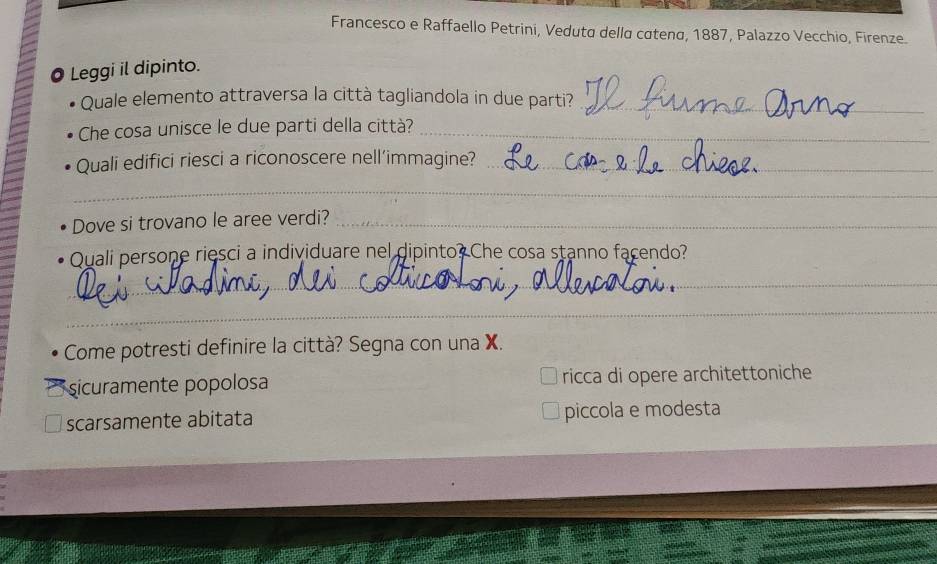 Francesco e Raffaello Petrini, Veduta della catena, 1887, Palazzo Vecchio, Firenze.
Leggi il dipinto.
• Quale elemento attraversa la città tagliandola in due parti? Il fiume Arno
• Che cosa unisce le due parti della città?
• Quali edifici riesci a riconoscere nell'immagine? Le case e le chiese.
• Dove si trovano le aree verdi?
• Quali persone riesci a individuare nel dipinto? Che cosa stanno facendo?
Dei citadini, dei colticatori, allevatori.
• Come potresti definire la città? Segna con una X.
sicuramente popolosa
ricca di opere architettoniche
scarsamente abitata
piccola e modesta